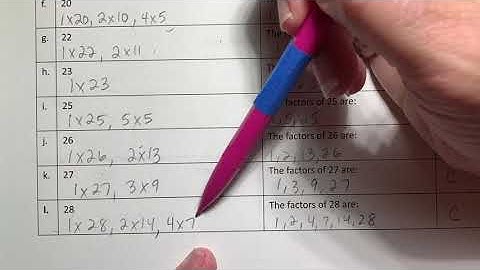 f. 20
1x20, 2x10, 4x5
g. 22
1x22, 2x11
The
h. 23
1x23
i. 25
1x25, 5x5
The factors of 25 are:
j. 26
1x26, 2x13
The factors of 26 are:
1, 2, 13, 26
k. 27
1x27, 3x9
The factors of 27 are:
1, 3, 9, 27
C
l. 28
1x28, 2x14, 4x7
The factors of 28 are:
1, 2, 4, 7, 14, 28
C